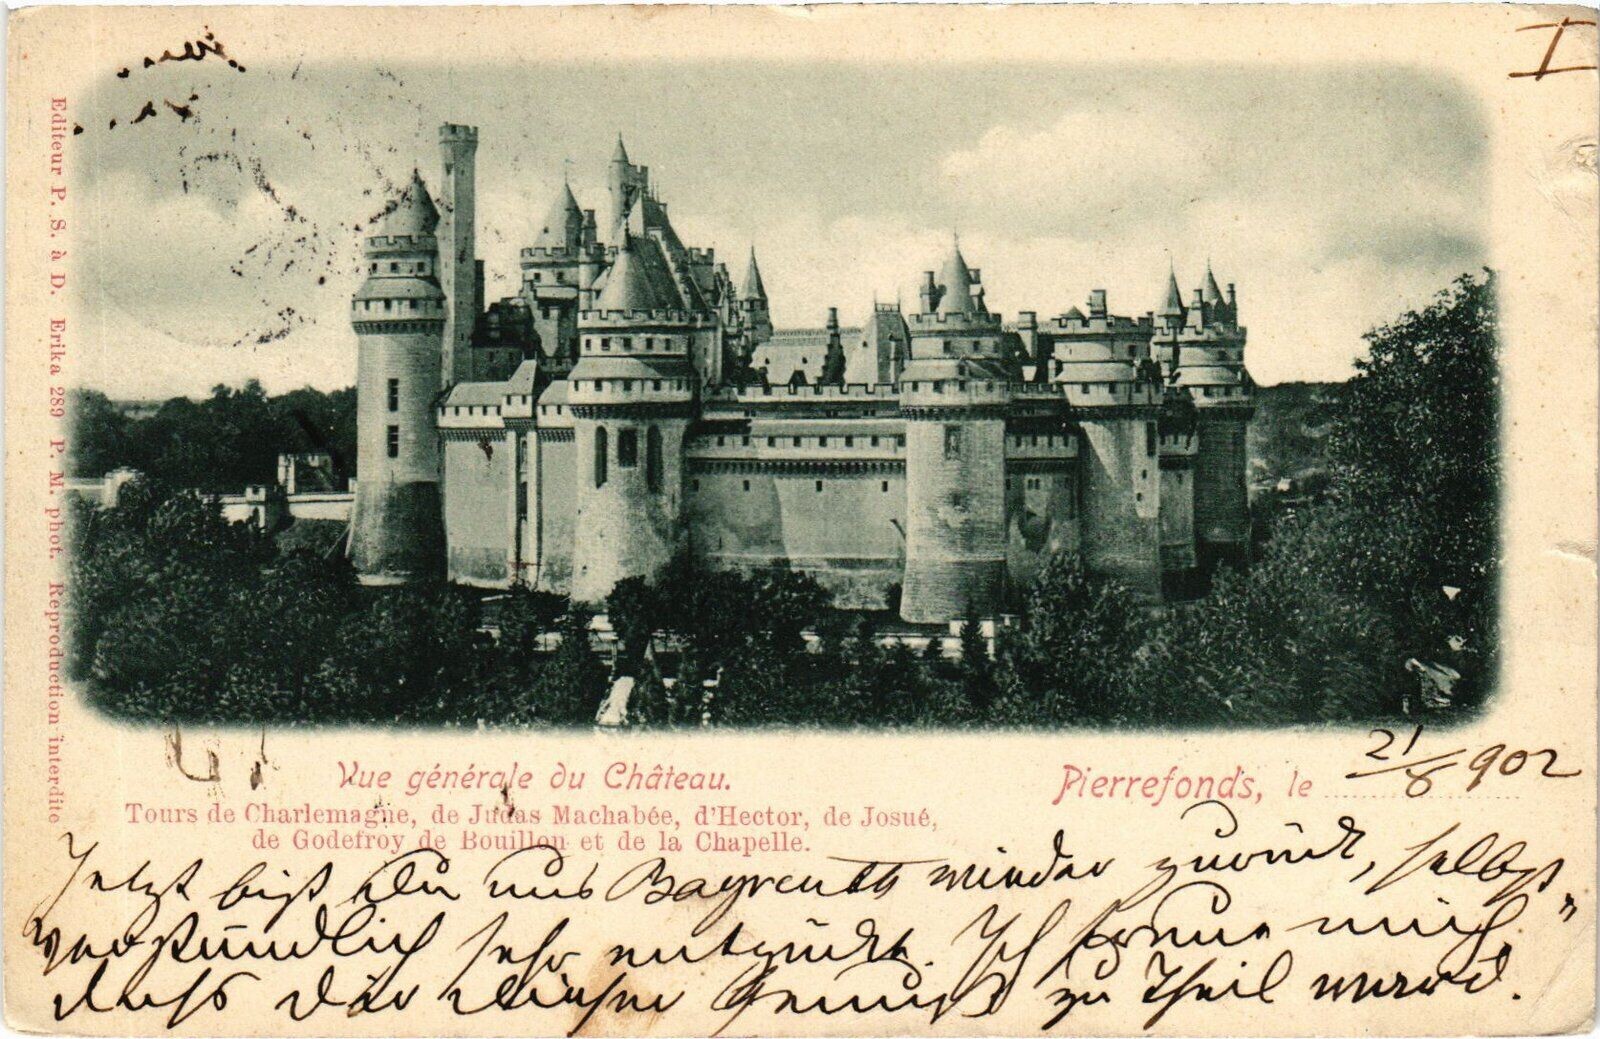 I
Editeur P. S. à D. Erika 289 P. M. phot. Reproduction interdite
Vue générale du Château.
Tours de Charlemagne, de Judas Machabée, d'Hector, de Josué,
de Godefroy de Bouillon et de la Chapelle.
Pierrefonds, le 21/8 902
Jetzt bist Du aus Bayreuth wieder zurück, selbst"
verständlich sehr entzückt. Ich freue mich,
dass Dir dieser Genuss zu Theil ward.